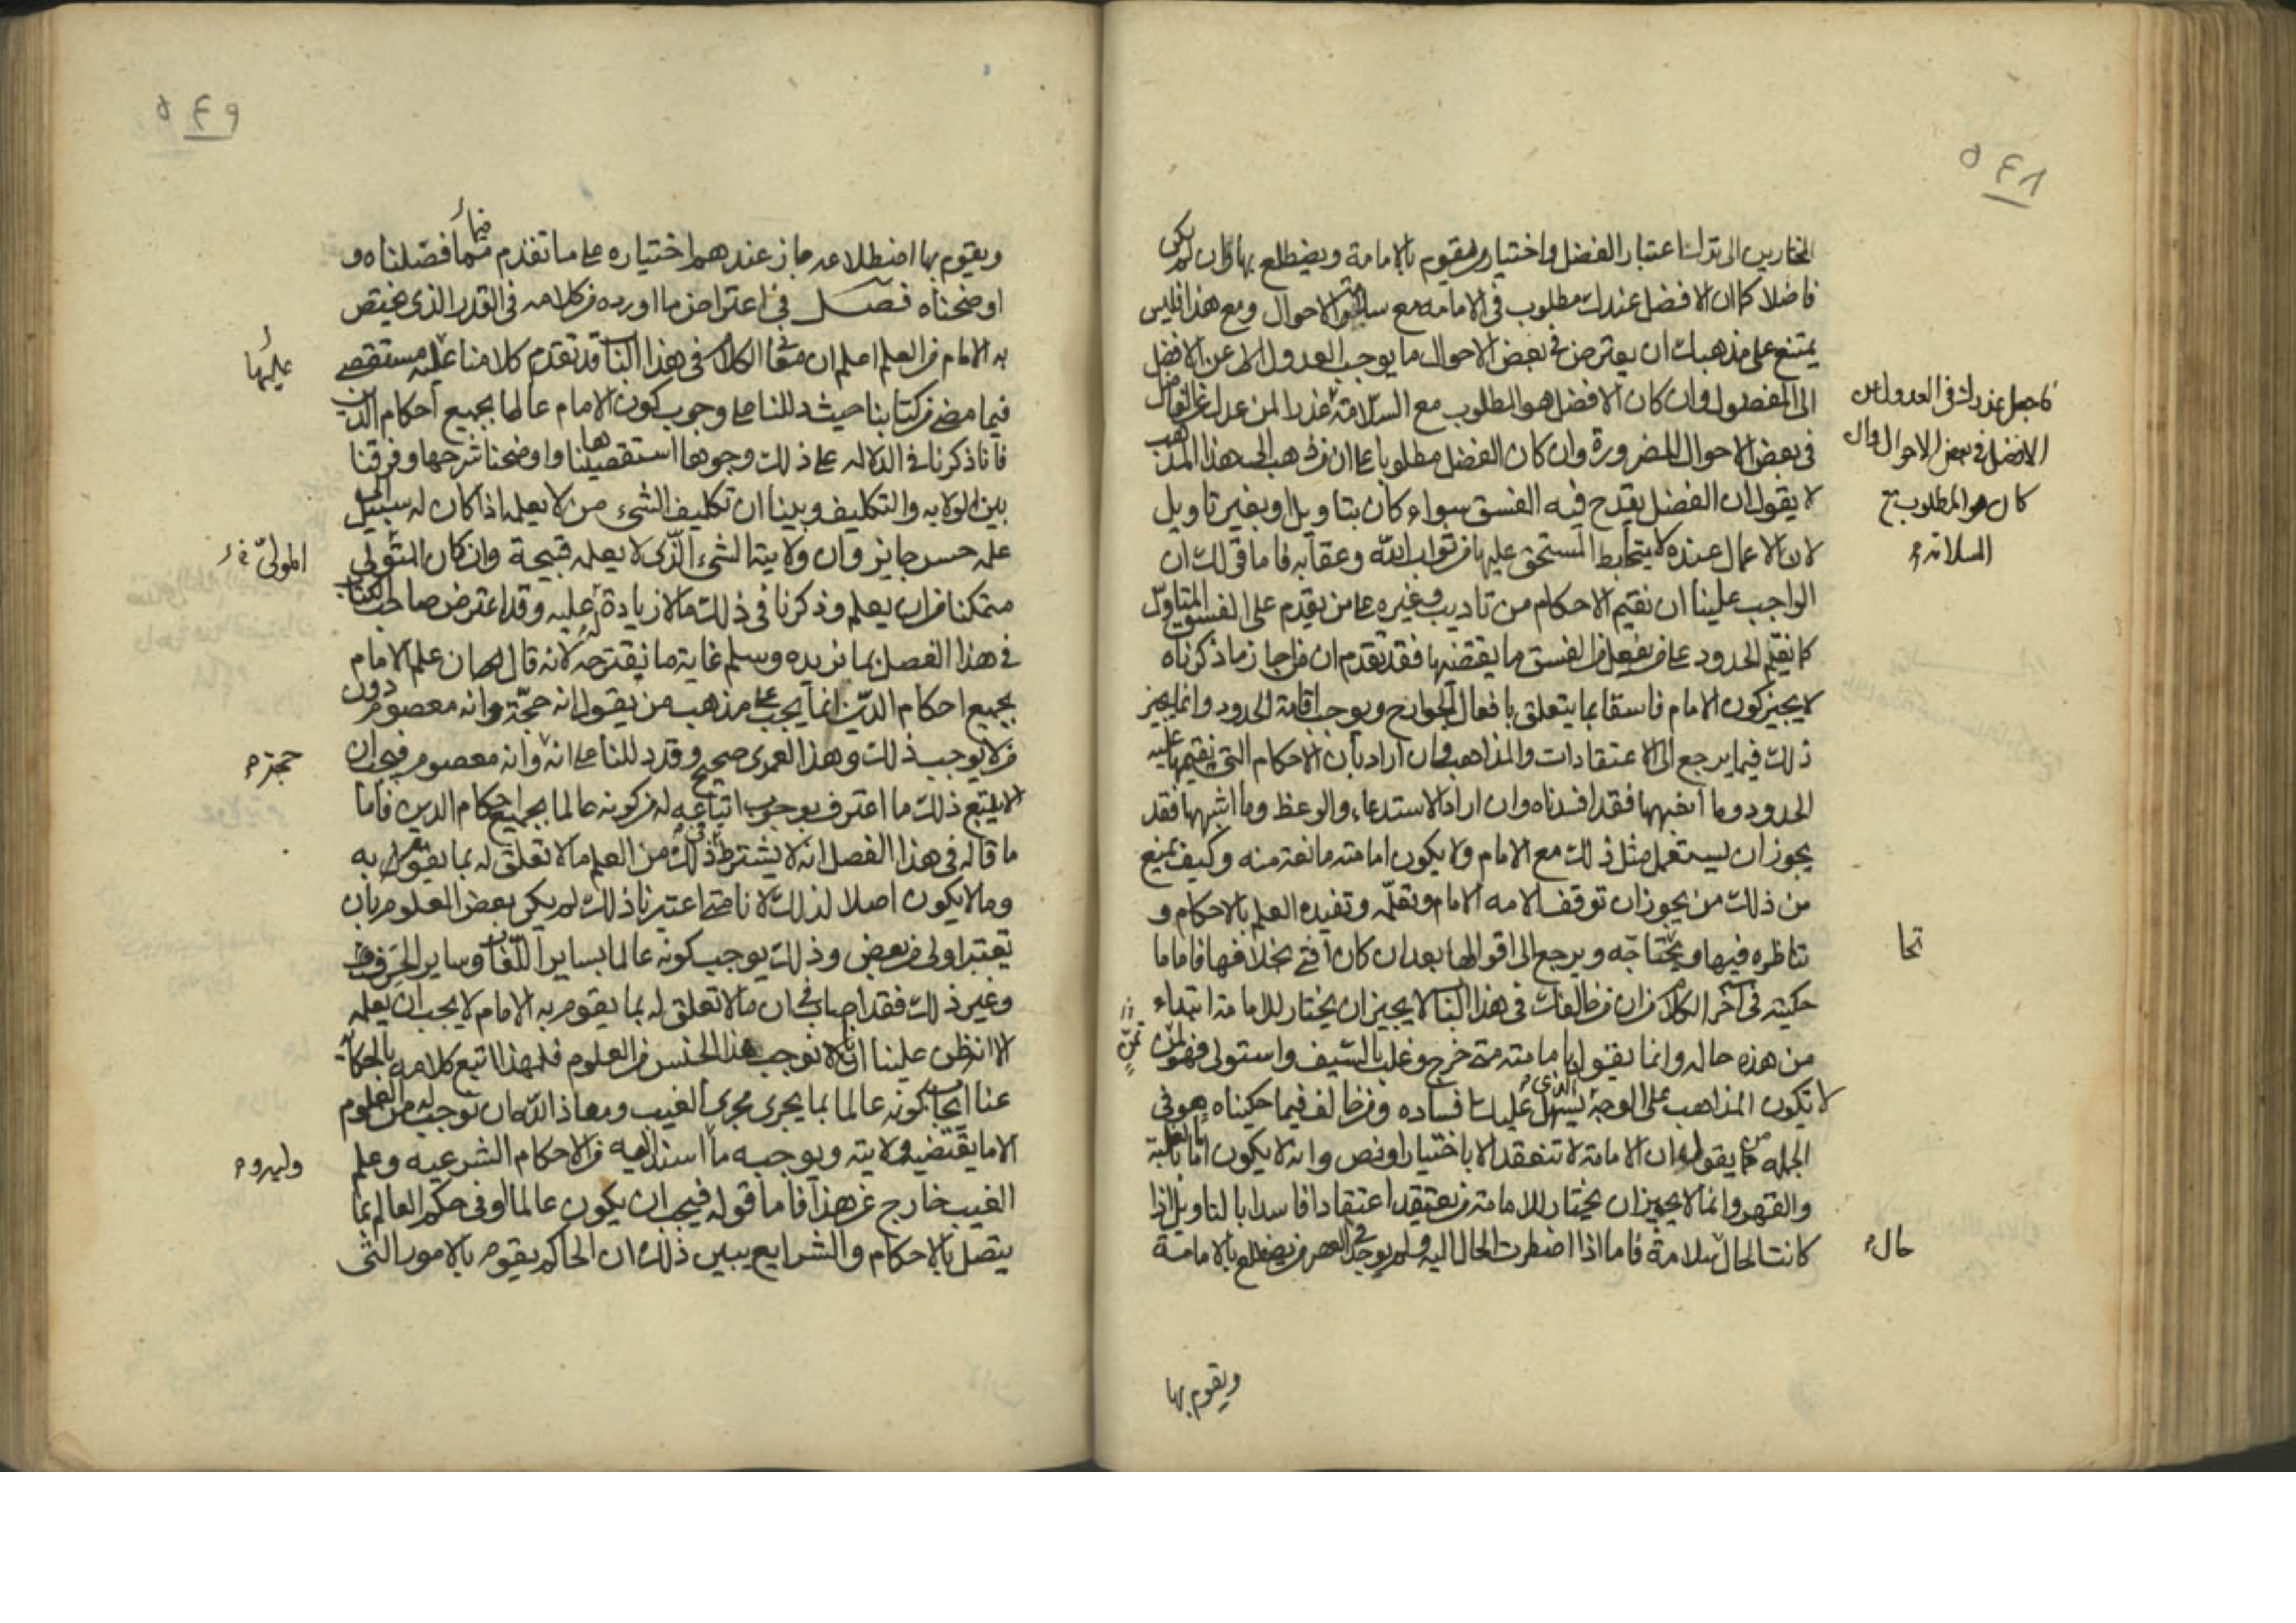 ٥٤٨
المختارين الى ترك اعتبار الفضل واختيار من يقوم بالامامة ويضطلع بها وان لم يكن
فاضلا كما ان الافضل عندك مطلوب في الامامه مع سلامة الاحوال ومع هذا فليس
يمتنع على مذهبك ان يعترض في بعض الاحوال ما يوجب العدول عن الافضل
الى المفضول وان كان الافضل هو المطلوب مع السلامة عذرا لمن عدل عن الفاضل
في بعض الاحوال للضرورة وان كان الفضل مطلوبا على ان من ذهب الى هذا المذهب
لا يقول ان الفضل يقدح فيه الفسق سواء كان بتاويل او بغير تاويل
لان الاعمال عنده لا يتحابط المستحق عليها من ثواب الله وعقابه فاما قولك ان
الواجب علينا ان نقيم الاحكام من تاديب وغيره على من يقدم على الفسق المتاول
كما نقيم الحدود على من يفعل من الفسق ما يقتضيها فقد تقدم ان من اجاز ما ذكرناه
لا يجيز كون الامام فاسقا بما يتعلق بافعال الجوارح ويوجب اقامة الحدود وانما يجيز
ذلك فيما يرجع الى الاعتقادات والمذاهب فان اراد بان الاحكام التي نقيمها عليه
الحدود وما اشبهها فقد افسدناه وان اراد الاستدعاء والوعظ وما اشبهها فقد
يجوز ان يستعمل مثل ذلك مع الامام ولا يكون امامته مانعة منه وكيف يمنع
من ذلك من يجوز ان توقف الامه الامام وتعلمه وتفيده العلم بالاحكام و
تناظره فيها ويحتاجه ويرجع الى اقوالها بعد ان كان افتى بخلافها فاما ما
حكيته في آخر الكلام من ان من خالفك في هذا الباب لا يجيز ان يختار للامامة ابتداء
من هذه حاله وانما يقول بامامته متى خرج وغلب بالسيف واستولى فهو ممن
لا تكون المذاهب على الوجه الذي يسهل عليك افساده ومن خالف فيما حكيناه هو في
الجمله ممن يقول ان الامامة لا تنعقد الا باختيار او نص وانه لا يكون اماما بالغلبة
والقهر وانما لا يجيز ان يختار للامامة من يعتقد اعتقادا فاسدا بالتاويل اذا
كانت الحال سلامة فاما اذا اضطرت الحال اليه ولم يوجد في العصر من يضطلع بالامامة
فاجعل عذرك في العدول عن
الافضل في بعض الاحوال وان
كان هو المطلوب مع
السلامة
تحا
حال
ويقوم بها
٥٤٩
ويقوم بها اضطلاعه جاز عندهم اختياره على ما تقدم فيما فصلناه و
اوضحناه فصل في اعتراض ما اورده من كلامه في القدر الذي يختص
به الامام من العلم اعلم ان الكلام في هذا الباب قد تقدم كلامنا عليه مستقصى
فيما مضى من كتابنا حيث دللنا على وجوب كون الامام عالما بجميع احكام الدين
فانا ذكرنا في الدلاله على ذلك وجوها استقصيناها واوضحنا شرحها وفرقنا
بين الولايه والتكليف وبينا ان تكليف الشيء من لا يعلمه اذا كان له سبيل الى
علمه حسن جايز وان ولاية الشيء الذي لا يعلمه قبيحة وان كان المتولي
متمكنا من ان يعلم وذكرنا في ذلك ما لا زيادة عليه وقد اعترض صاحب الكتاب
في هذا الفصل بما نريده وسلم غاية ما نقترحه لانه قال ان علم الامام
بجميع احكام الدين انما يجب على مذهب من يقول انه حجة وانه معصوم دون
من لا يوجب ذلك وهذا لعمرى صحيح وقد دللنا على انه وانه معصوم فيجب ان
يتبع ذلك ما اعترف بوجوب اتباعه له من كونه عالما بجميع احكام الدين فاما
ما قاله في هذا الفصل انه لا يشترط في ذلك من العلم ما لا تعلق له بما يقوم به
وما لا يكون اصلا لذلك لانا متى اعتبرنا ذلك لم يكن بعض العلوم بان
تعتبر اولى من بعض وذلك يوجب كونه عالما بساير اللغات وساير الحرف
وغير ذلك فقد اصاب في ان ما لا تعلق له بما يقوم به الامام لا يجب ان يعلمه
الا انه ظن علينا انا نوجب هذا الجنس من العلوم فلهذا اتبع كلامه بالحكاية
عنا ايجاب كونه عالما بما يجرى مجرى الغيب ومعاذ الله ان نوجب له من العلوم
الا ما يقتضيه ولايته ويوجبه ما اسند اليه من الاحكام الشرعيه وعلم
الغيب خارج عن هذا فاما قوله فيجب ان يكون عالما او في حكم العالم بما
يتصل بالاحكام والشرايع يبين ذلك ان الحاكم يقوم بالامور التي
عليها
المولى
حجة
وليه